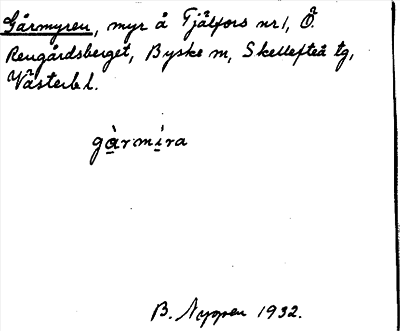 Gårmyren, myr å Tjälfors nr 1, Ö.
Rengårdsberget, Byske sn, Skellefteå tg,
Västerb l.
gàrmìra
B. Nyppen 1932.